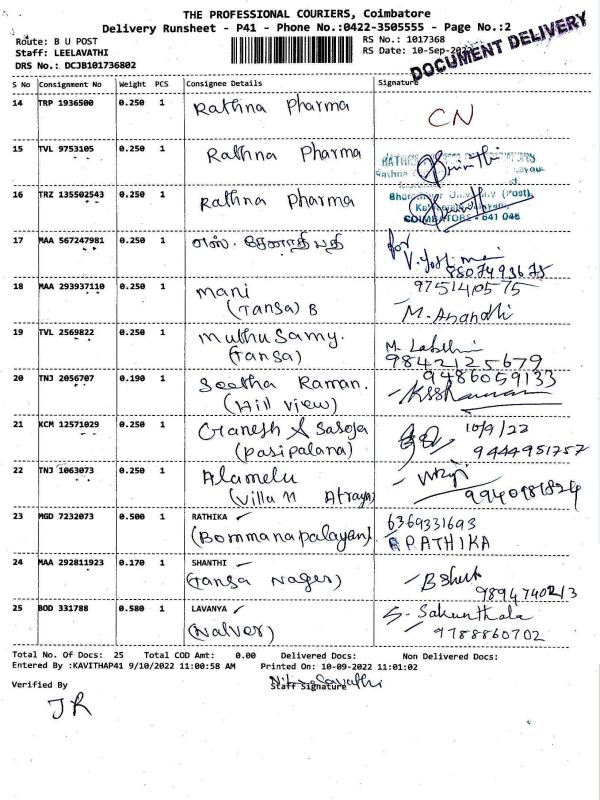 THE PROFESSIONAL COURIERS, Coimbatore
Delivery Runsheet - P41 - Phone No.:0422-3505555 - Page No.:2
Route: B U POST
RS No.: 1017368
Staff: LEELAVATHI
RS Date: 10-Sep-2022
DRS No.: DCJB101736802
DOCUMENT DELIVERY
S No Consignment No Weight PCS Consignee Details Signature
14 TRP 1936500 0.250 1 Rathna Pharma CN
15 TVL 9753105 0.250 1 Rathna Pharma
16 TRZ 135502543 0.250 1 Rathna Pharma
COIMBATORE - 641 046
17 MAA 567247981 0.250 1 எஸ். for
8807493675
18 MAA 293937110 0.250 1 Mani 9751410575
(Tansa) B M. Anandhi
19 TVL 2569822 0.250 1 Muthu Samy.
(Tansa) 9842125679
20 TNJ 2056707 0.190 1 Seetha Raman. 9486059133
(Hill view)
21 KCM 12571029 0.250 1 Ganesh & Saroja 10/9/22
(Pasipalana) 9444951757
22 TNJ 1063073 0.250 1 Alamelu
(Villa 11 Atraya)
23 MGD 7232073 0.500 1 RATHIKA 6369331693
(Bommanapalayan) RATHIKA
24 MAA 292811923 0.170 1 SHANTHI
(Tansa Nager)
25 BOD 331788 0.580 1 LAVANYA S. Sakunthala
(Nalver) 9788860702
Total No. Of Docs: 25 Total COD Amt: 0.00 Delivered Docs: Non Delivered Docs:
Entered By :KAVITHAP41 9/10/2022 11:00:58 AM Printed On: 10-09-2022 11:01:02
Verified By Staff Signature
JR